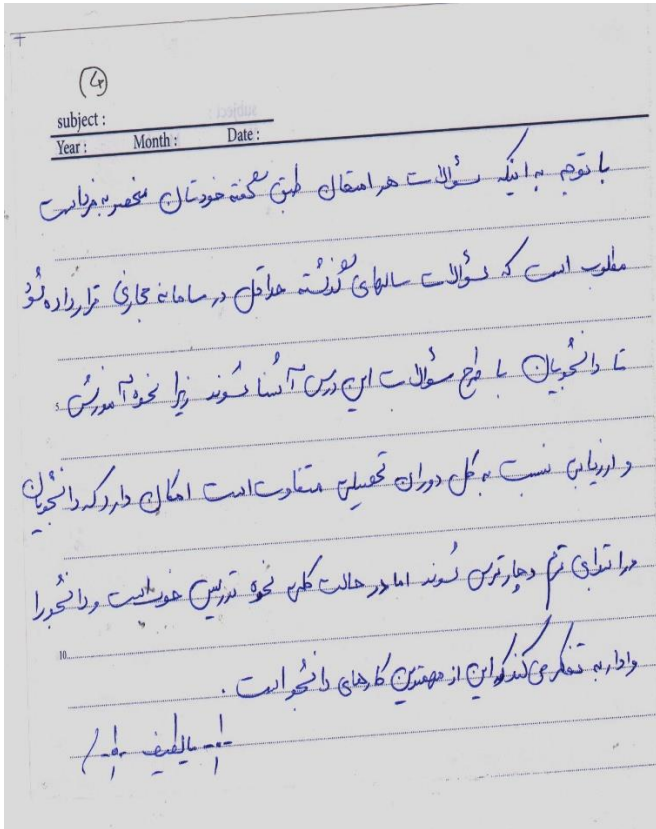 ④
subject :
Year : Month : Date :
با توجه به اینکه سؤالات هر امتحان طبق گفته خودتان منحصر به فرد است
مطلوب است که سؤالات سالهای گذشته حداقل در سامانه مجازی قرار داده شود
تا دانشجویان با طرح سؤالات این درس آشنا شوند زیرا نحوه آموزش
5
و ارزیابی نسبت به کل دوران تحصیلی متفاوت است امکان دارد که دانشجویان
در ابتدای ترم دچار ترس شوند اما در حالت کلی نحوه تدریس خوب است و دانشجو را
10
وادار به تفکر می کند که این از مهمترین کارهای دانشجو است .
یا لطیف